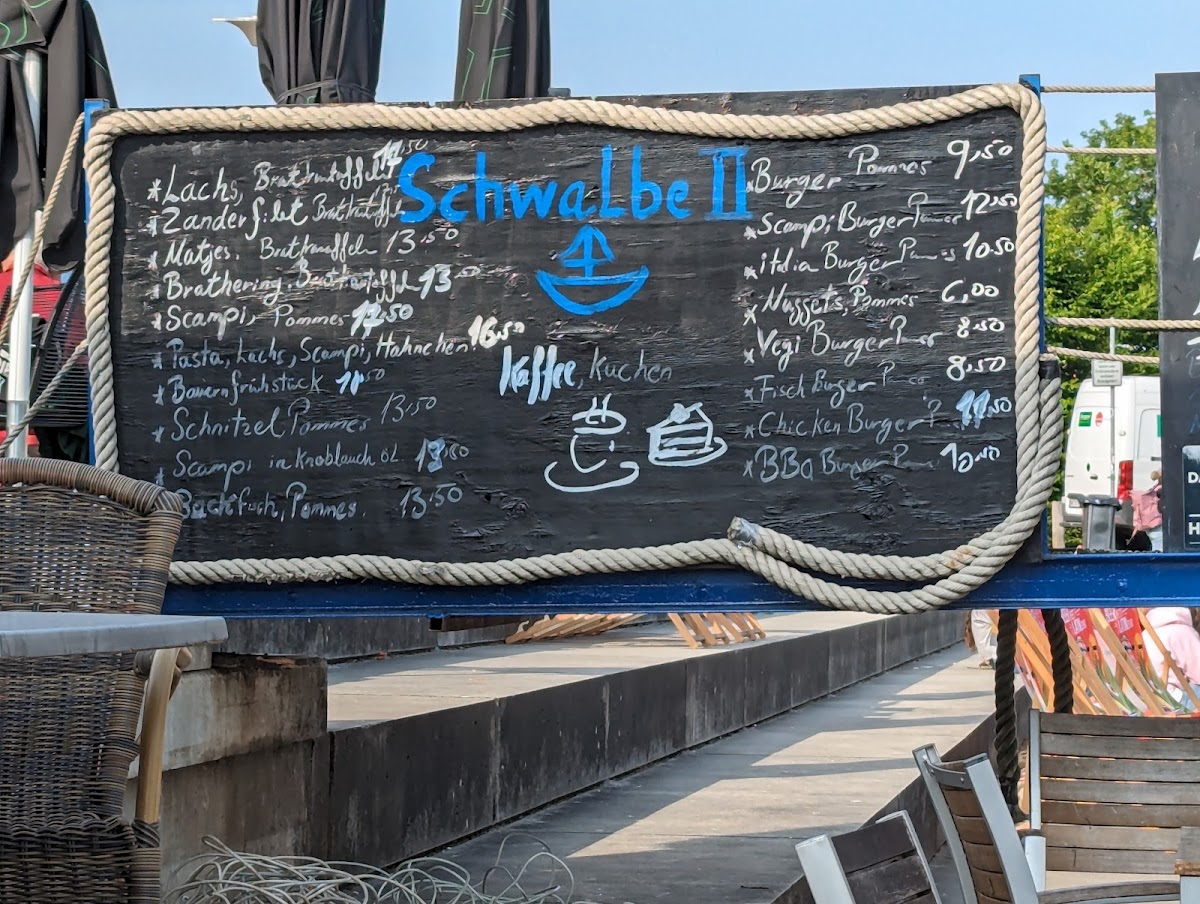 *Lachs, Bratkartoffel 17,50
*Zanderfilet Bratkartoffel
*Matjes, Bratkartoffeln 13,50
*Brathering, Bratkartoffel 13,50
*Scampi, Pommes 17,50
*Pasta, Lachs, Scampi, Hähnchen. 16,50
*Bauernfrühstück 11,50
*Schnitzel Pommes 13,50
*Scampi in Knoblauch öl
Backfisch, Pommes. 13,50
Schwalbe II
Kaffee, Kuchen
*Burger Pommes 9,50
*Scampi Burger Pommes 12,50
*italia Burger Pommes 10.50
*Nuggets, Pommes 6,00
*Vegi Burger Pommes 8,50
*Fisch Burger 8,50
*Chicken Burger P. 11,50
*BBQ Burger Pommes 10.50